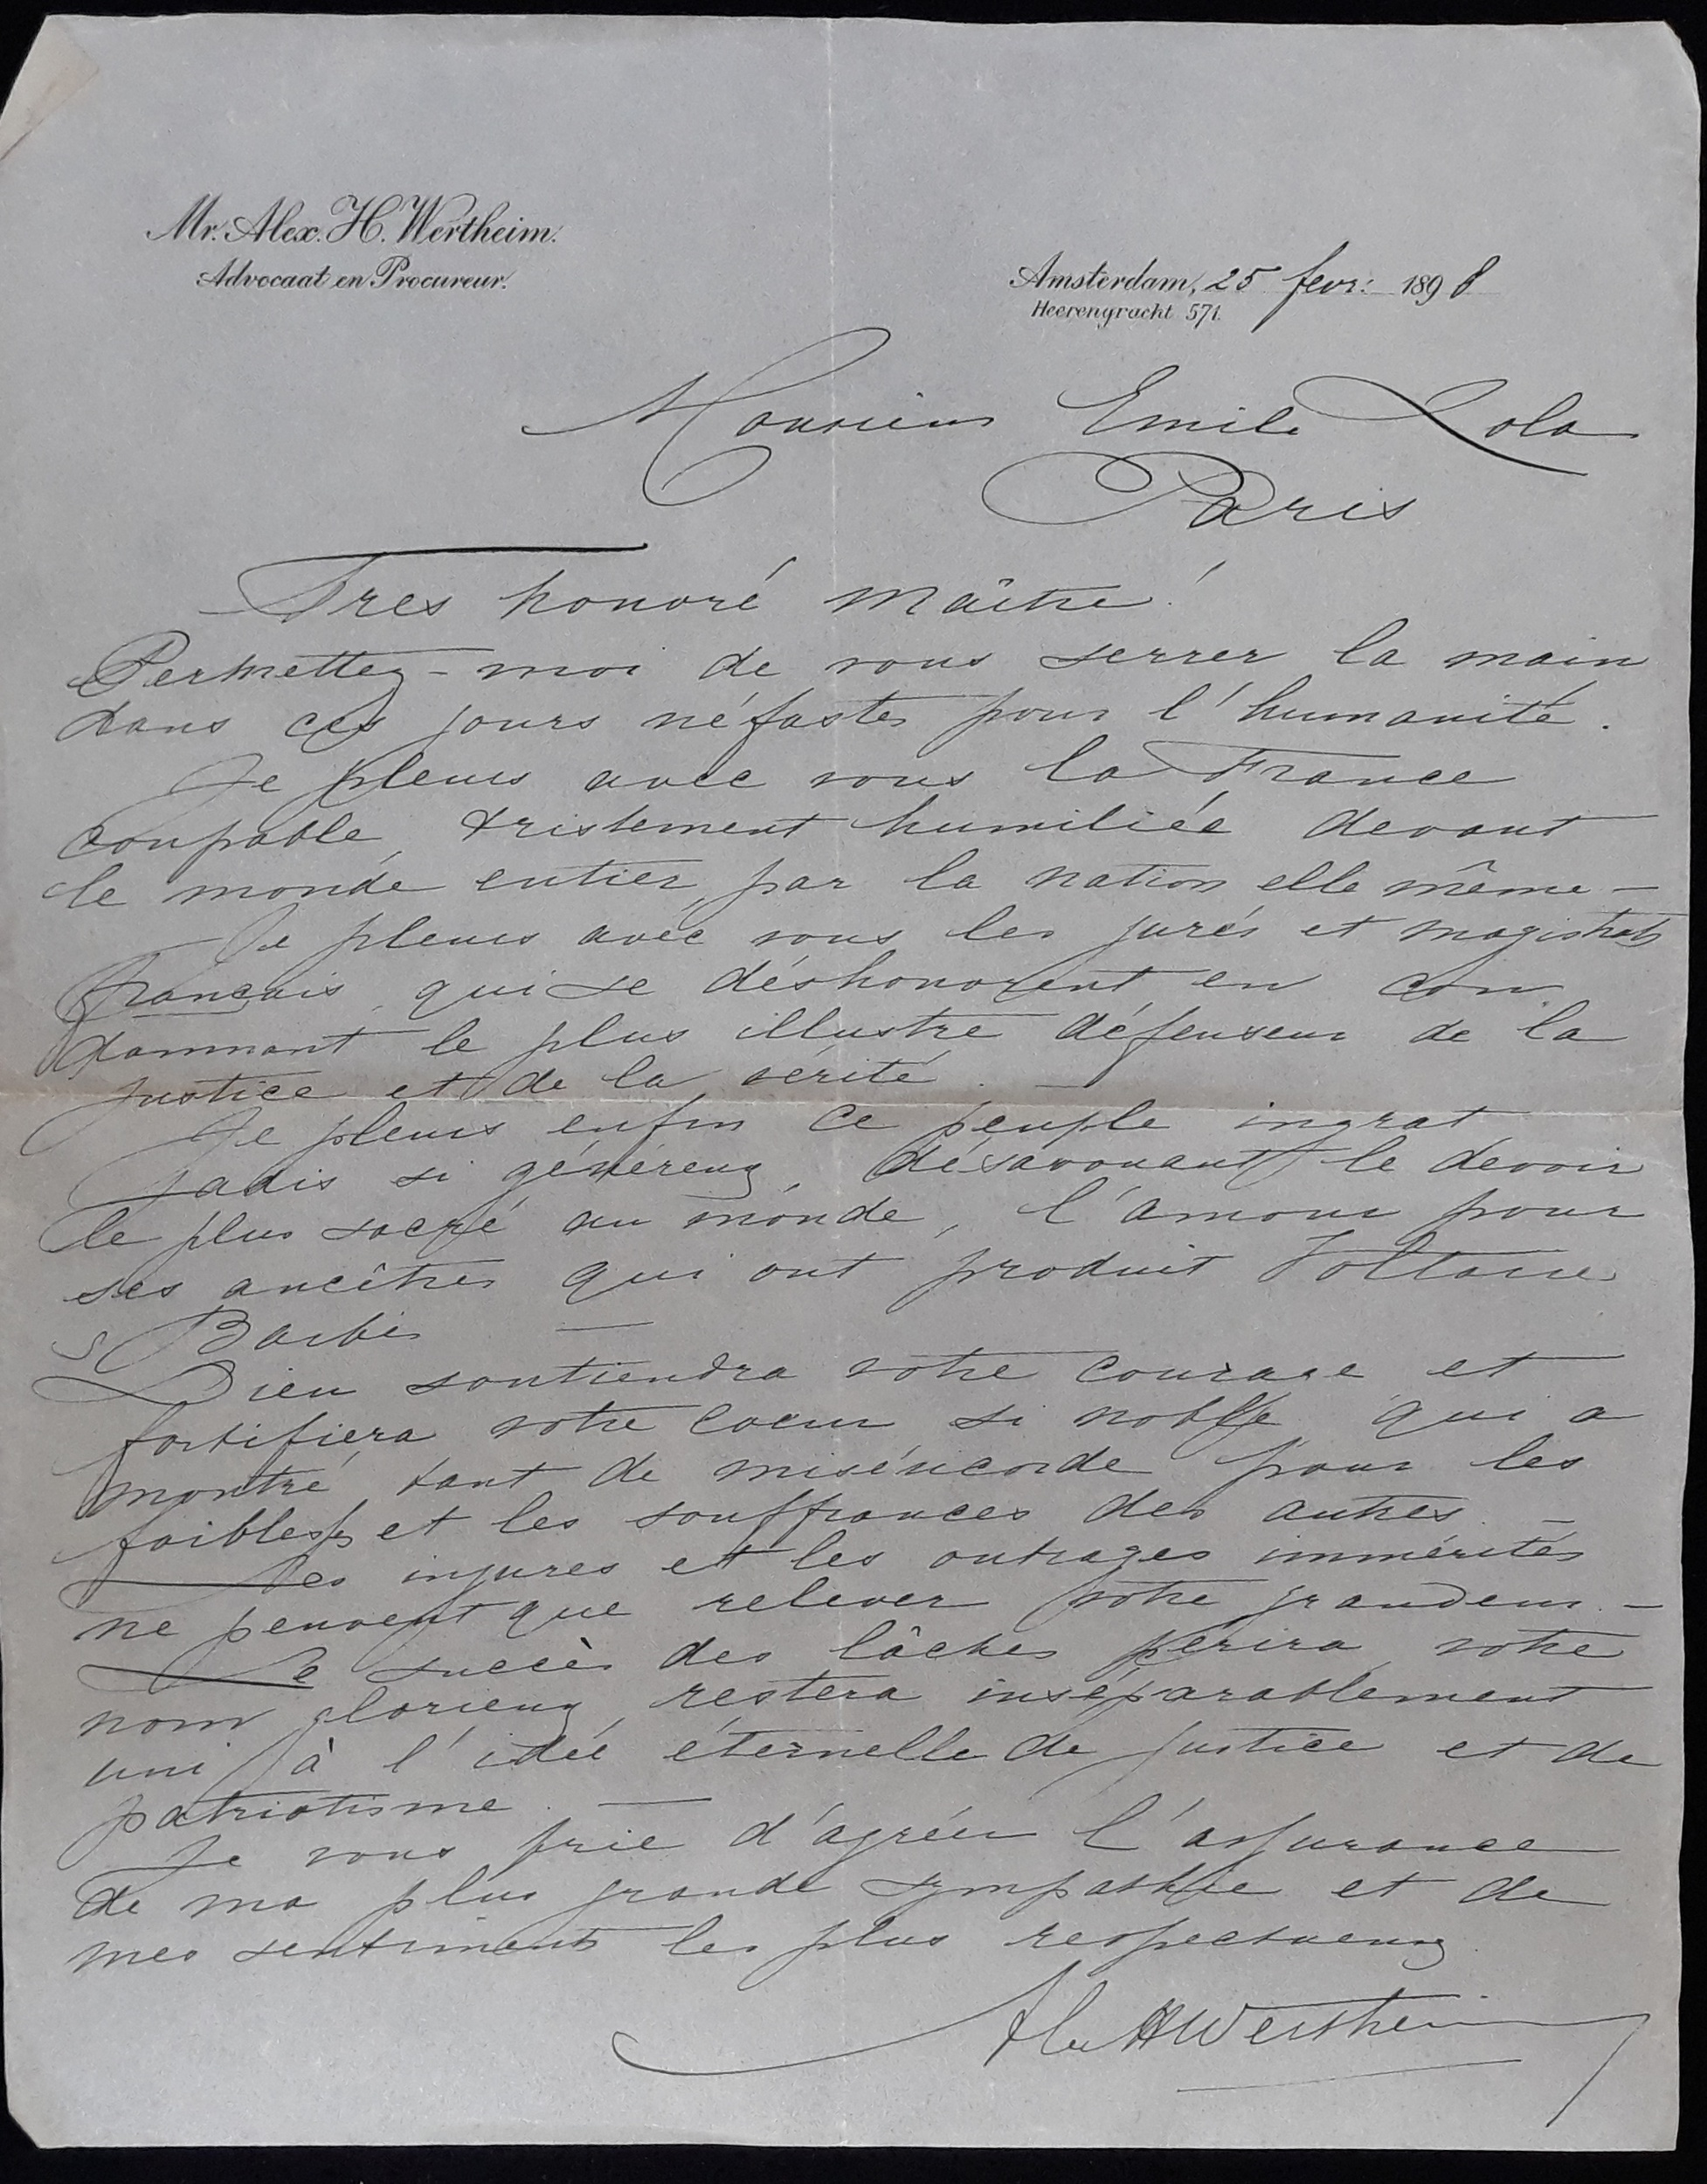 Mr. Alex. H. Wertheim.
Advocaat en Procureur.
Amsterdam, 25 fevr: 1898
Heerengracht 571.
Monsieur Emile Zola
Paris
Tres honoré maître!
Permettez-moi de vous serrer la main
dans ces jours néfastes pour l'humanité.
Je pleurs avec vous la France
coupable, tristement humiliée devant
le monde entier, par la nation elle même —
Je pleurs avec vous les jurés et magistrats
français, qui se déshonorent en con
damnant le plus illustre défenseur de la
justice et de la vérité. —
Je pleurs enfin ce peuple ingrat
jadis si généreux, désavouant le devoir
le plus sacré au monde, l'amour pour
ses ancêtres qui ont produit Voltaire
Barbès —
Dieu soutiendra votre courage et
fortifiera votre coeur si noble qui a
montré tant de miséricorde pour les
faibles et les souffrances des autres. —
Les injures et les outrages immérités
ne peuvent que relever votre grandeur. —
Le succès des lâches périra, votre
nom glorieux, restera inséparablement
uni à l'idée éternelle de justice et de
patriotisme. —
Je vous prie d'agréer l'assurance
de ma plus grande sympathie et de
mes sentiments les plus respectueux.
Alex H Wertheim